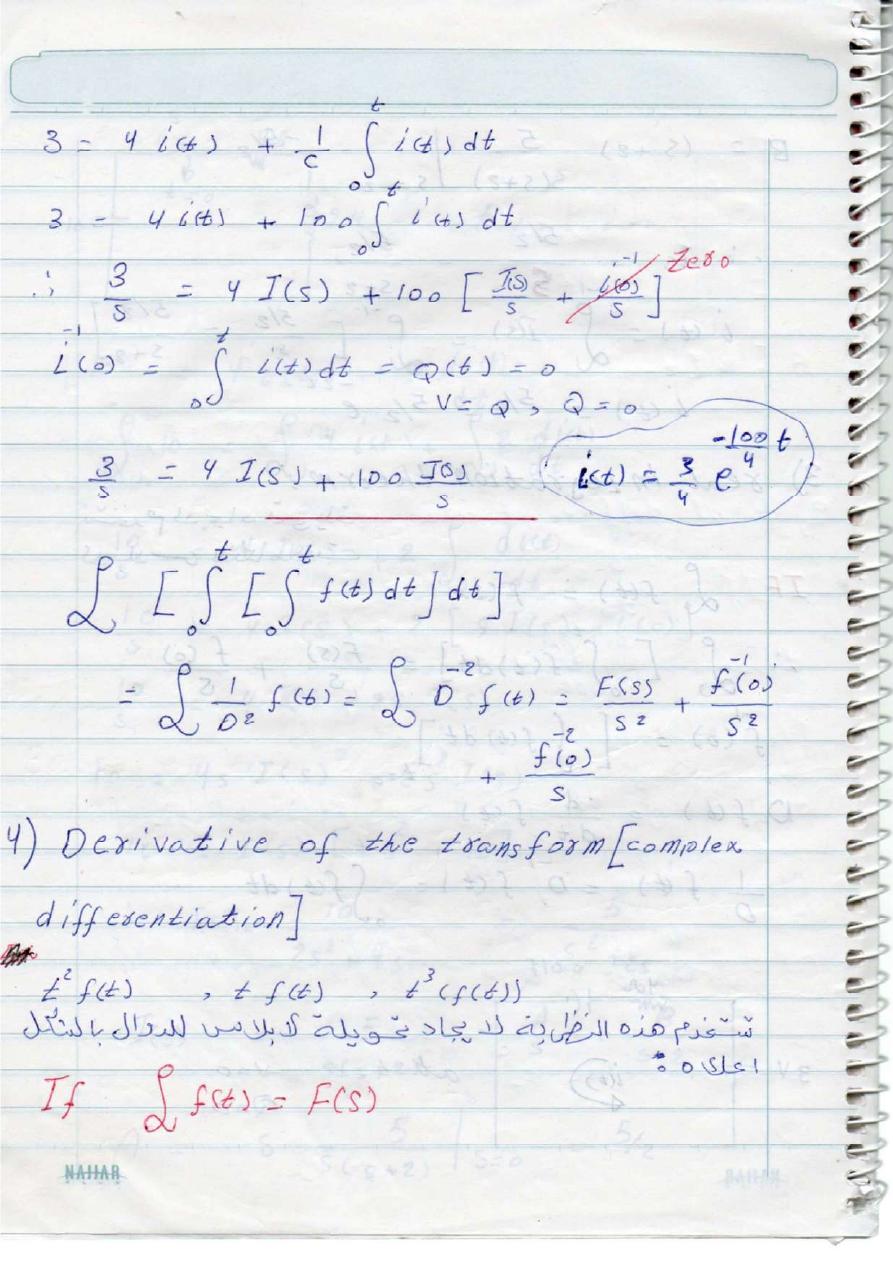 3 = 4 i(t) + 1/C ∫₀ᵗ i(t) dt
3 = 4 i(t) + 100 ∫₀ᵗ i(t) dt
∴ 3/s = 4 I(s) + 100 [ I(s)/s + i⁻¹(0)/s ] Zero
i⁻¹(0) = ∫₀ᵗ i(t) dt = Q(t) = 0
V = Q , Q = 0
3/s = 4 I(s) + 100 I(s)/s
i(t) = 3/4 e^(-100/4 t)
ℒ [ ∫₀ᵗ [ ∫₀ᵗ f(t) dt ] dt ]
= ℒ 1/D² f(t) = ℒ D⁻² f(t) = F(s)/s² + f⁻¹(0)/s²
+ f⁻²(0)/s
4) Derivative of the transform [complex
differentiation]
t² f(t) , t f(t) , t³ (f(t))
تستخدم هذه النظرية لايجاد تحويلة لابلاس للدوال بالشكل
اعلاه :
If ℒ f(t) = F(s)
NAJJAR